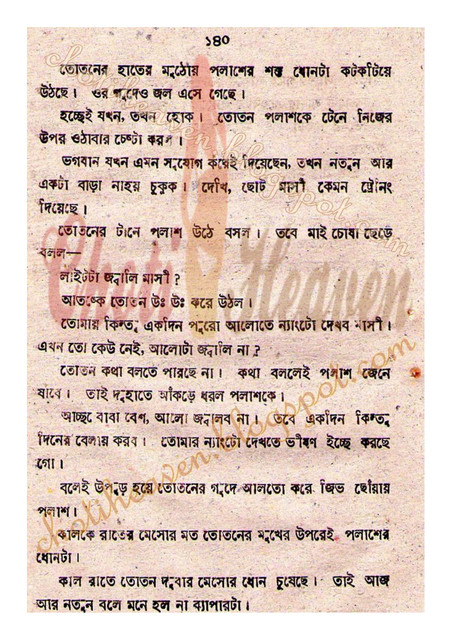 ১৪০
তোতনের হাতের মুঠোয় পলাশের শক্ত ধোনটা কটকটিয়ে
উঠছে। ওর গুদেও জল এসে গেছে।
হচ্ছেই যখন, তখন হোক। তোতন পলাশকে টেনে নিজের
উপর ওঠাবার চেষ্টা করল।
ভগবান যখন এমন সুযোগ করেই দিয়েছেন, তখন নতুন আর
একটা বাড়া নাহয় ঢুকুক। দেখি, ছোট মাসী কেমন ট্রেনিং
দিয়েছে।
তোতনের টানে পলাশ উঠে বসল। তবে মাই চোষা ছেড়ে
বলল—
লাইটটা জ্বালি মাসী?
আতঙ্কে তোতন উঃ উঃ করে উঠল।
তোমায় কিন্তু একদিন পুরো আলোতে ন্যাংটো দেখব মাসী।
এখন তো কেউ নেই, আলোটা জ্বালি না?
তোতন কথা বলতে পারছে না। কথা বললেই পলাশ জেনে
যাবে। তাই দুহাতে আঁকড়ে ধরল পলাশকে।
আচ্ছা বাবা বেশ, আলো জ্বালব না। তবে একদিন কিন্তু
দিনের বেলায় করব। তোমার ন্যাংটো দেখতে ভীষণ ইচ্ছে করছে
গো।
বলেই উপুড় হয়ে তোতনের গুদে আলতো করে জিভ ছোঁয়ায়
পলাশ।
কালকে রাতের মেসোর মত তোতনের মুখের উপরেই পলাশের
ধোনটা।
কাল রাতে তোতন দুবার মেসোর ধোন চুষেছে। তাই আজ
আর নতুন বলে মনে হল না ব্যাপারটা।
Choti Heaven
chotiheaven.blogspot.com
chotiheaven.blogspot.com